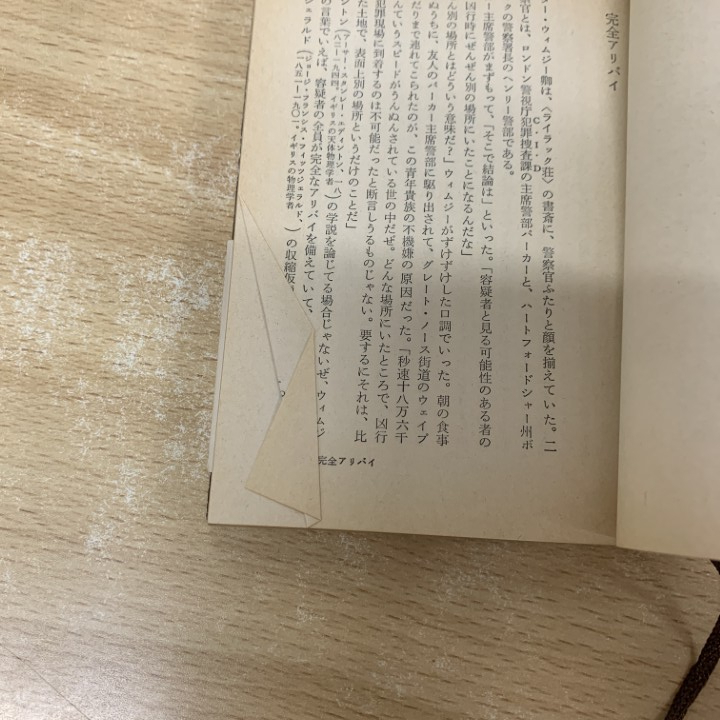 完全アリバイ
ター・ウィムジー卿は、〈ライラック荘〉の書斎に、警察官ふたりと顔を揃えていた。二
察官とは、ロンドン警視庁犯罪捜査課の主席警部パーカーと、ハートフォードシャー州ボ
C・I・D
クの警察署長のヘンリー警部である。
ー主席警部がまずもって、「そこで結論は」といった。「容疑者と見る可能性のある者の
凶行時にぜんぜん別の場所にいたことになるんだな」
ん別の場所とはどういう意味だ?」ウィムジーがずけずけした口調でいった。朝の食事
ぬうちに、友人のパーカー主席警部に駆り出されて、グレート・ノース街道のウェイプ
だりまで連れてこられたのが、この青年貴族の不機嫌の原因だった。「秒速十八万六千
んていうスピードがうんぬんされている世の中だぜ。どんな場所にいたところで、凶行
犯罪現場に到着するのは不可能だったと断言しうるものじゃない。要するにそれは、比
た土地で、表面上別の場所というだけのことだ」
ントン(アーサー・スタンレー・エディントン、一八八二―一九四四。イギリスの天体物理学者)の学説を論じてる場合じゃないぜ、ウィムジ
の言葉でいえば、容疑者の全員が完全なアリバイを備えていて、
ジェラルド(ジョージ・フランシス・フィッツジェラルド、一八五一―一九〇一。イギリスの物理学者)の収縮仮
完全アリバイ